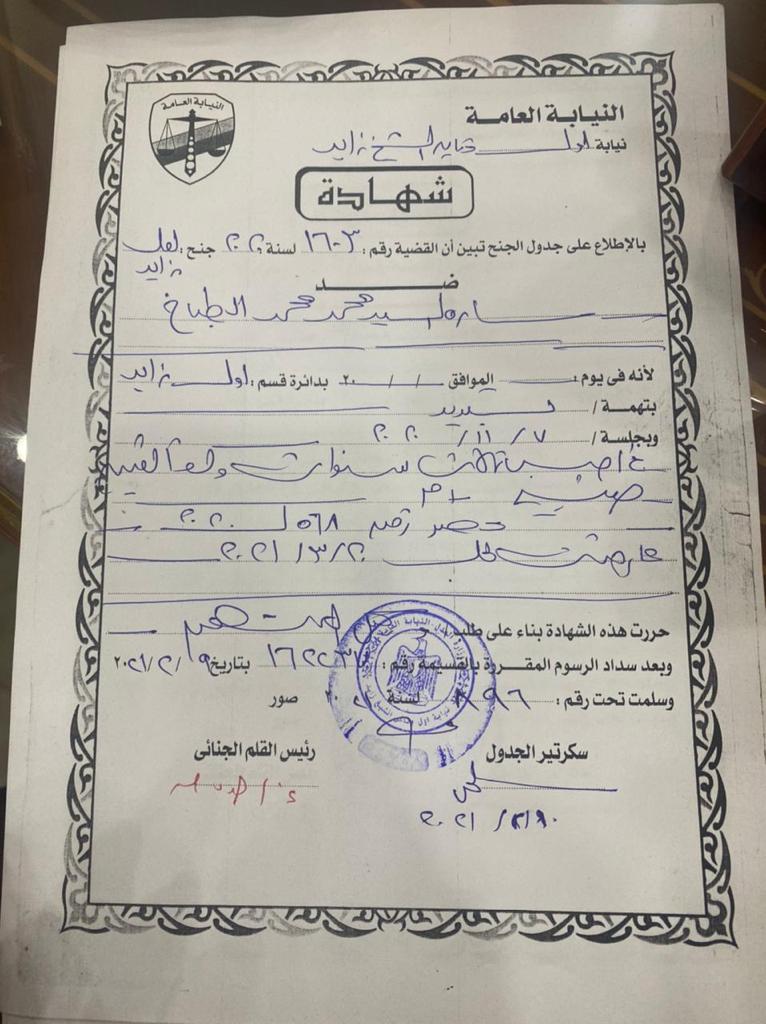 النيابة العامة
النيابة العامة
نيابة اول الشيخ زايد
شهادة
بالإطلاع على جدول الجنح تبين أن القضية رقم : ١٦٠٣ لسنة ٢٠٢٠ جنح : اول
زايد
ضد
ساره السيد محمد محمد الطباخ
لأنه فى يوم : الموافق / / ٢٠ بدائرة قسم : اول زايد
بتهمة / تبديد
وبجلسة / ٧ / ١١ / ٢٠٢٠
غ حبس ثلاث سنوات
حصر رقم ٥٦٨ لـ ٢٠٢٠
عارضت لجلسة ٢٠ / ٣ / ٢٠٢١
حررت هذه الشهادة بناء على طلب
وبعد سداد الرسوم المقررة بالقسيمة رقم : بتاريخ ٩ / ٢ / ٢٠٢١
وسلمت تحت رقم : لسنة صور
سكرتير الجدول
رئيس القلم الجنائى